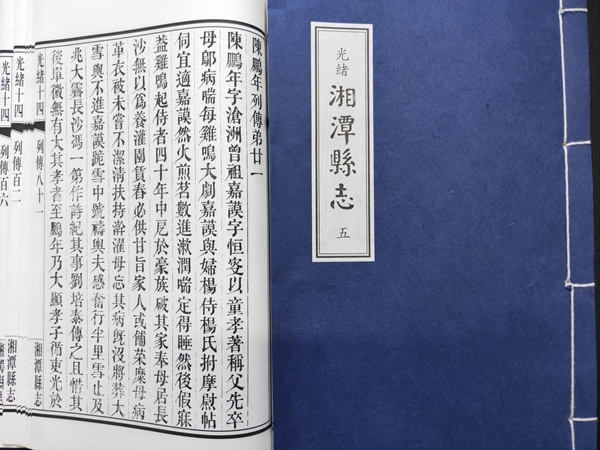 光緒
湘潭縣志
五
陳鵬年列傳弟廿一
陳鵬年字滄洲曾祖嘉謨字恒安以童孝著稱父先卒
母鄔病喘每雞鳴大劇嘉謨與婦楊侍楊氏拊摩慰帖
伺宜適嘉謨然火煎茗數進漱潤喘定得睡然後假寐
益雞鳴起侍者四十年中戹於豪族破其家奉母居長
沙無以爲養灌園賃舂必供甘旨家人或備菜糜母病
革衣被未嘗不潔清扶持澣濯母忘其病旣沒將葬大
雪輿不進嘉謨跪雪中號禱輿夫感奮行半里雪止及
兆大霽長沙馮一第作詩紀其事劉培泰傳之且惜其
後單微無有大其孝者至鵬年乃大顯孝子循吏光於
光緒十四 列傳八十一 湘潭縣志
光緒十四 列傳百二
光緒十四 列傳百六